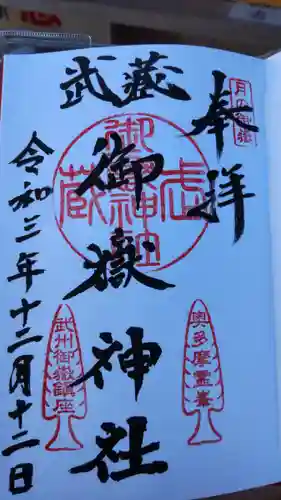 奉拝
月の御嶽
武蔵
御嶽神社
武蔵
御嶽神社
奥多摩霊峯
武州御嶽鎮座
令和三年十二月十二日